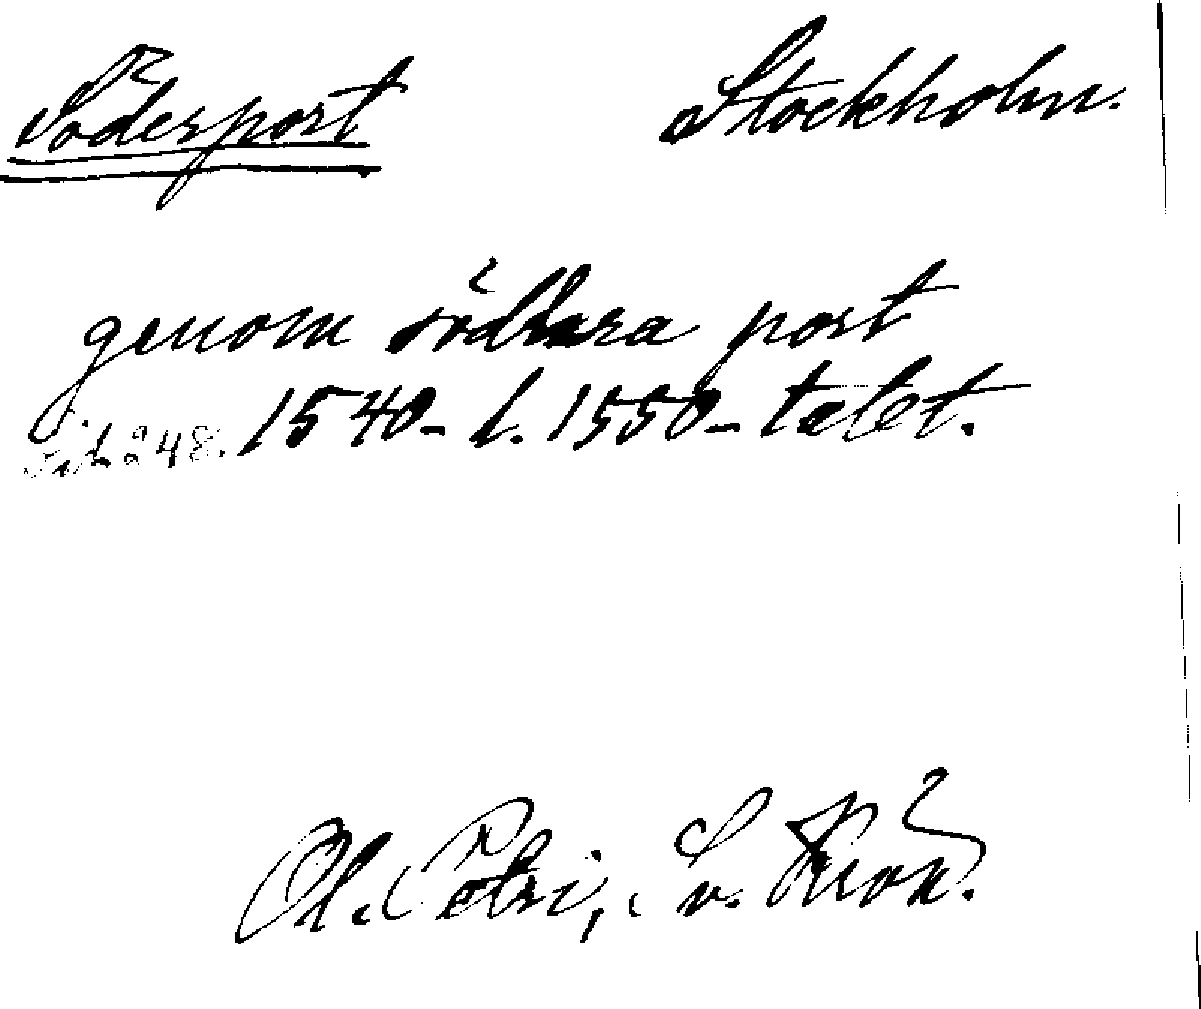 Söderport Stockholm.
genom södhra port
Sid. 248. 1540- l. 1550-talet.
Ol. Petri, Sv. Krön.